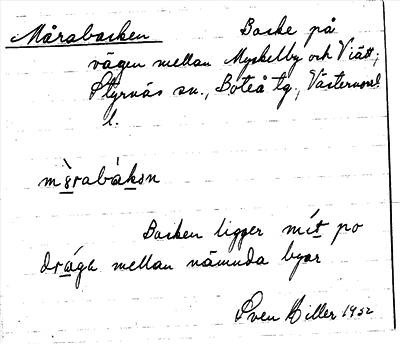 Mårabacken Backe på
vägen mellan Myckelby och Viätt,
Styrnäs sn., Boteå tg, Västernorrl.
l.
mɑ̀rabákɘn
Backen ligger mít po
drága mellan nämnda byar
Sven Hiller 1932